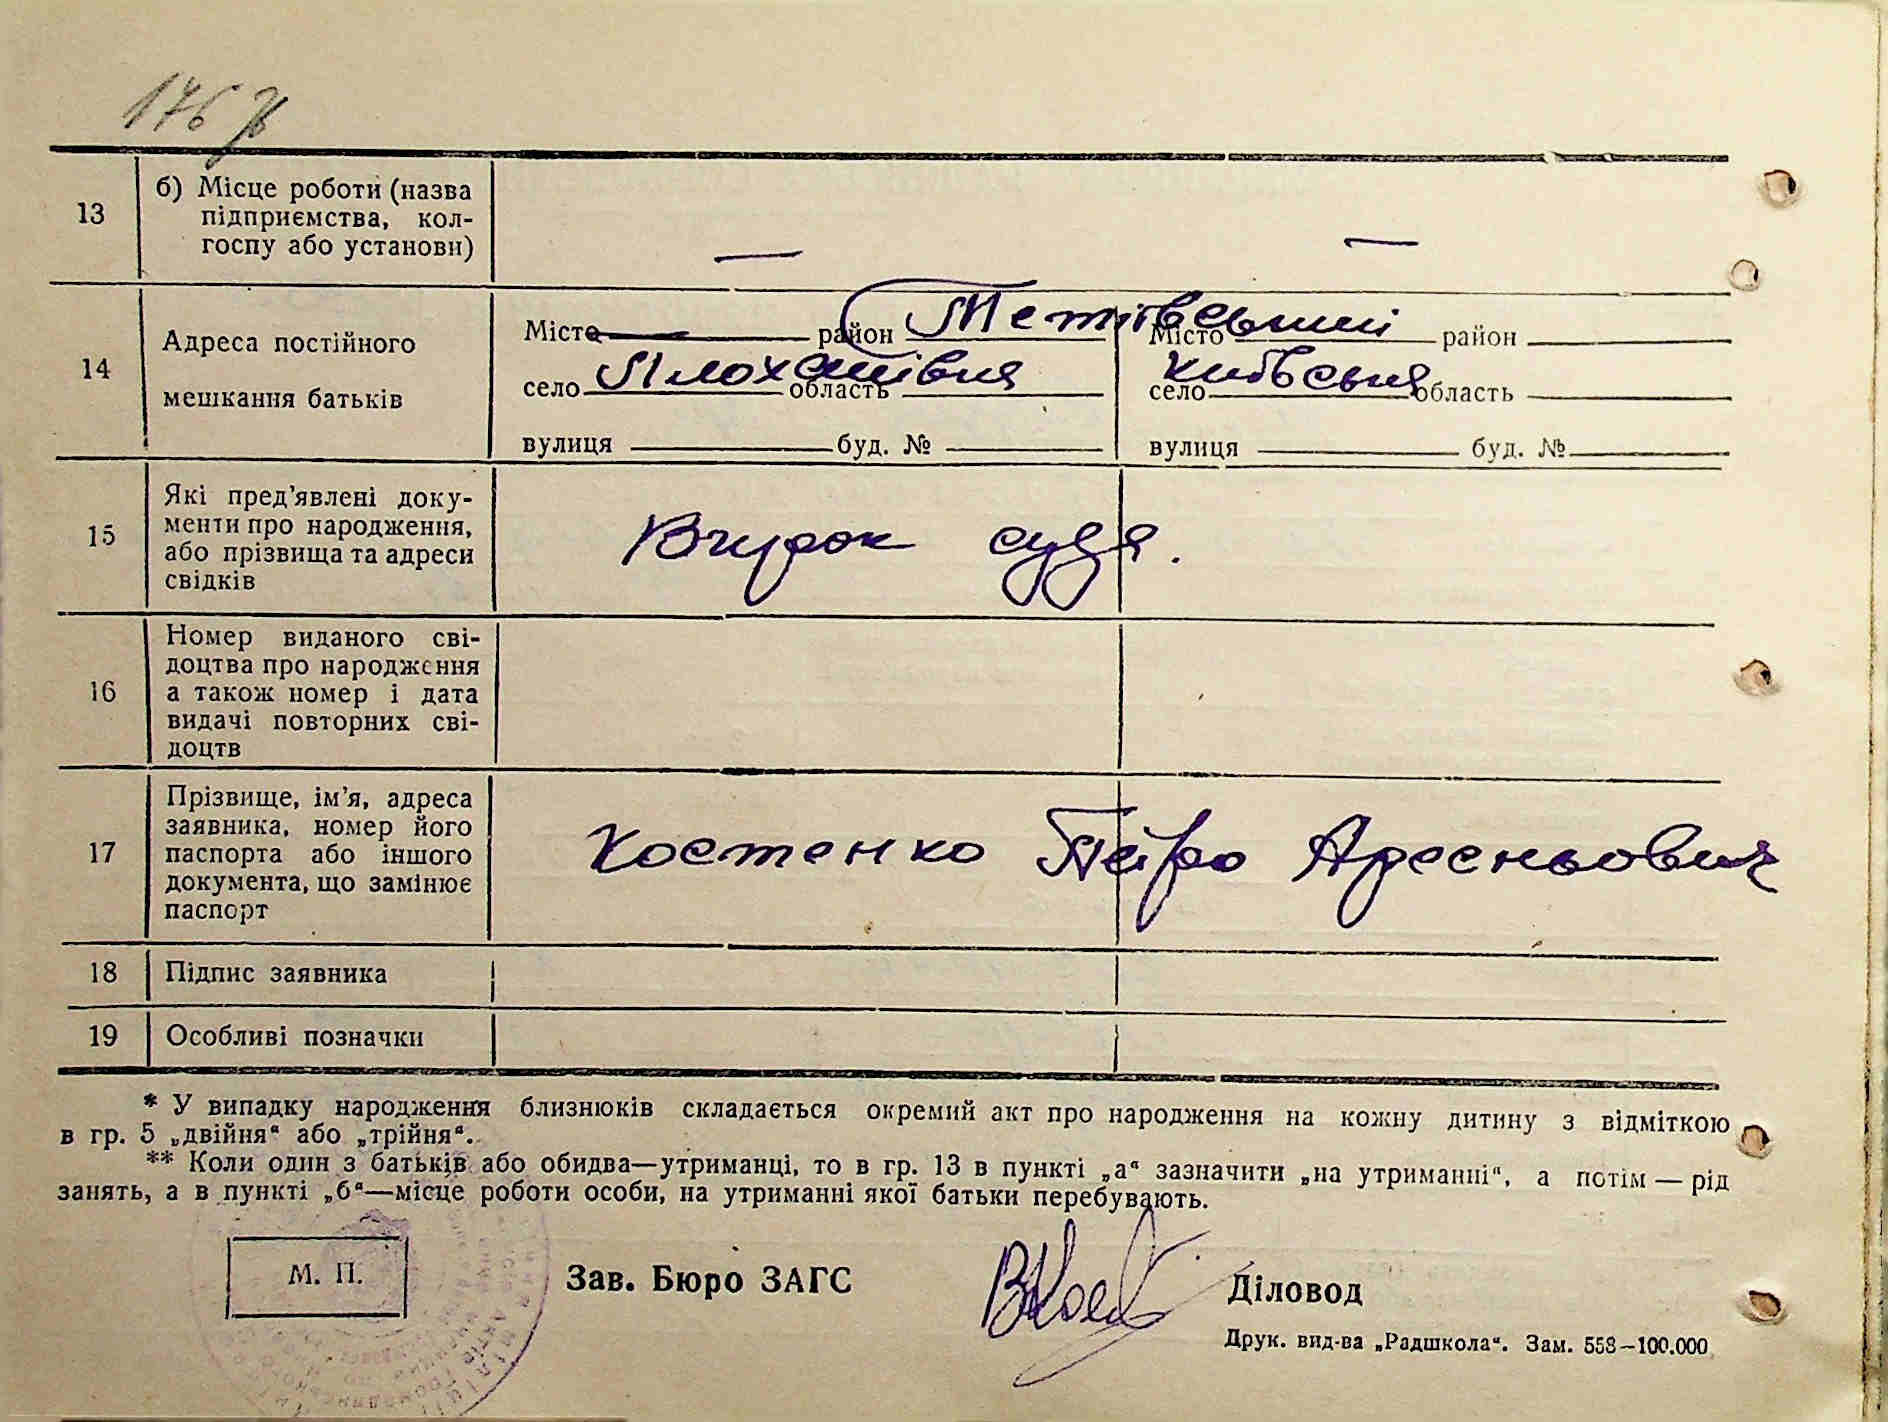 176
13
б) Місце роботи (назва
підприємства, кол-
госпу або установи)
— —
14
Адреса постійного
мешкання батьків
Місто район Тетіївський Місто район
село Плохатівня область село Київська область
вулиця буд. № вулиця буд. №
15
Які пред'явлені доку-
менти про народження,
або прізвища та адреси
свідків
Вчирок суда.
16
Номер виданого сві-
доцтва про народження
а також номер і дата
видачі повторних сві-
доцтв
17
Прізвище, ім'я, адреса
заявника, номер його
паспорта або іншого
документа, що замінює
паспорт
Костенко Петро Арсеньович
18 Підпис заявника
19 Особливі позначки
* У випадку народження близнюків складається окремий акт про народження на кожну дитину з відміткою
в гр. 5 „двійня“ або „трійня“.
** Коли один з батьків або обидва—утриманці, то в гр. 13 в пункті „а“ зазначити „на утриманні“, а потім — рід
занять, а в пункті „б“—місце роботи особи, на утриманні якої батьки перебувають.
М. П.
Зав. Бюро ЗАГС
Діловод
Друк. вид-ва „Радшкола“. Зам. 558—100.000